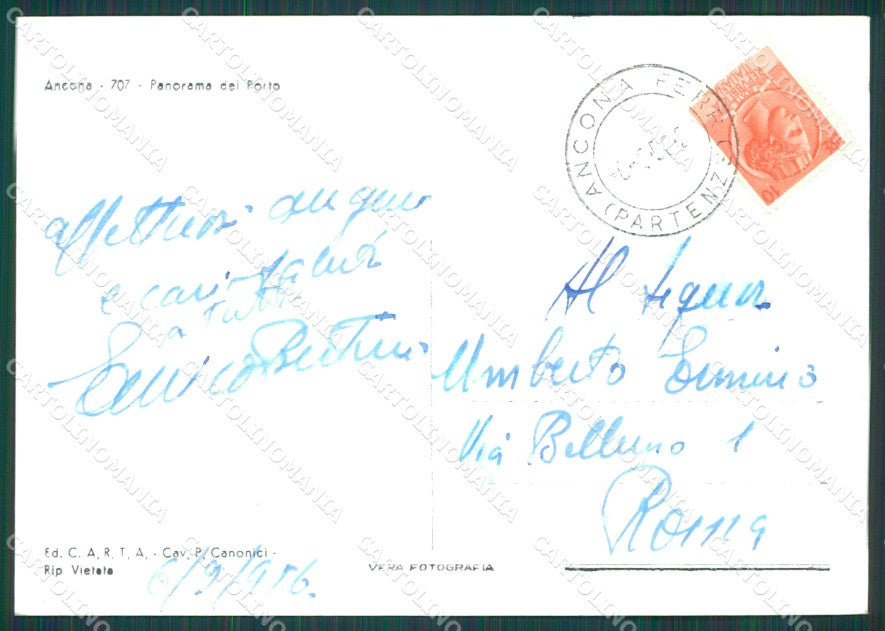 Ancona - 707 - Panorama del Porto
ANCONA FERR. C.
(PARTENZE
10
affettuosi auguri
e cari saluti
a tutti
Enrico
Al Signor
Umberto
Via Belluno 1
Roma
Ed. C. A. R. T. A. - Cav. P. Canonici -
Rip. Vietata
6/9/956.
VERA FOTOGRAFIA
CARTOLINOMANIA